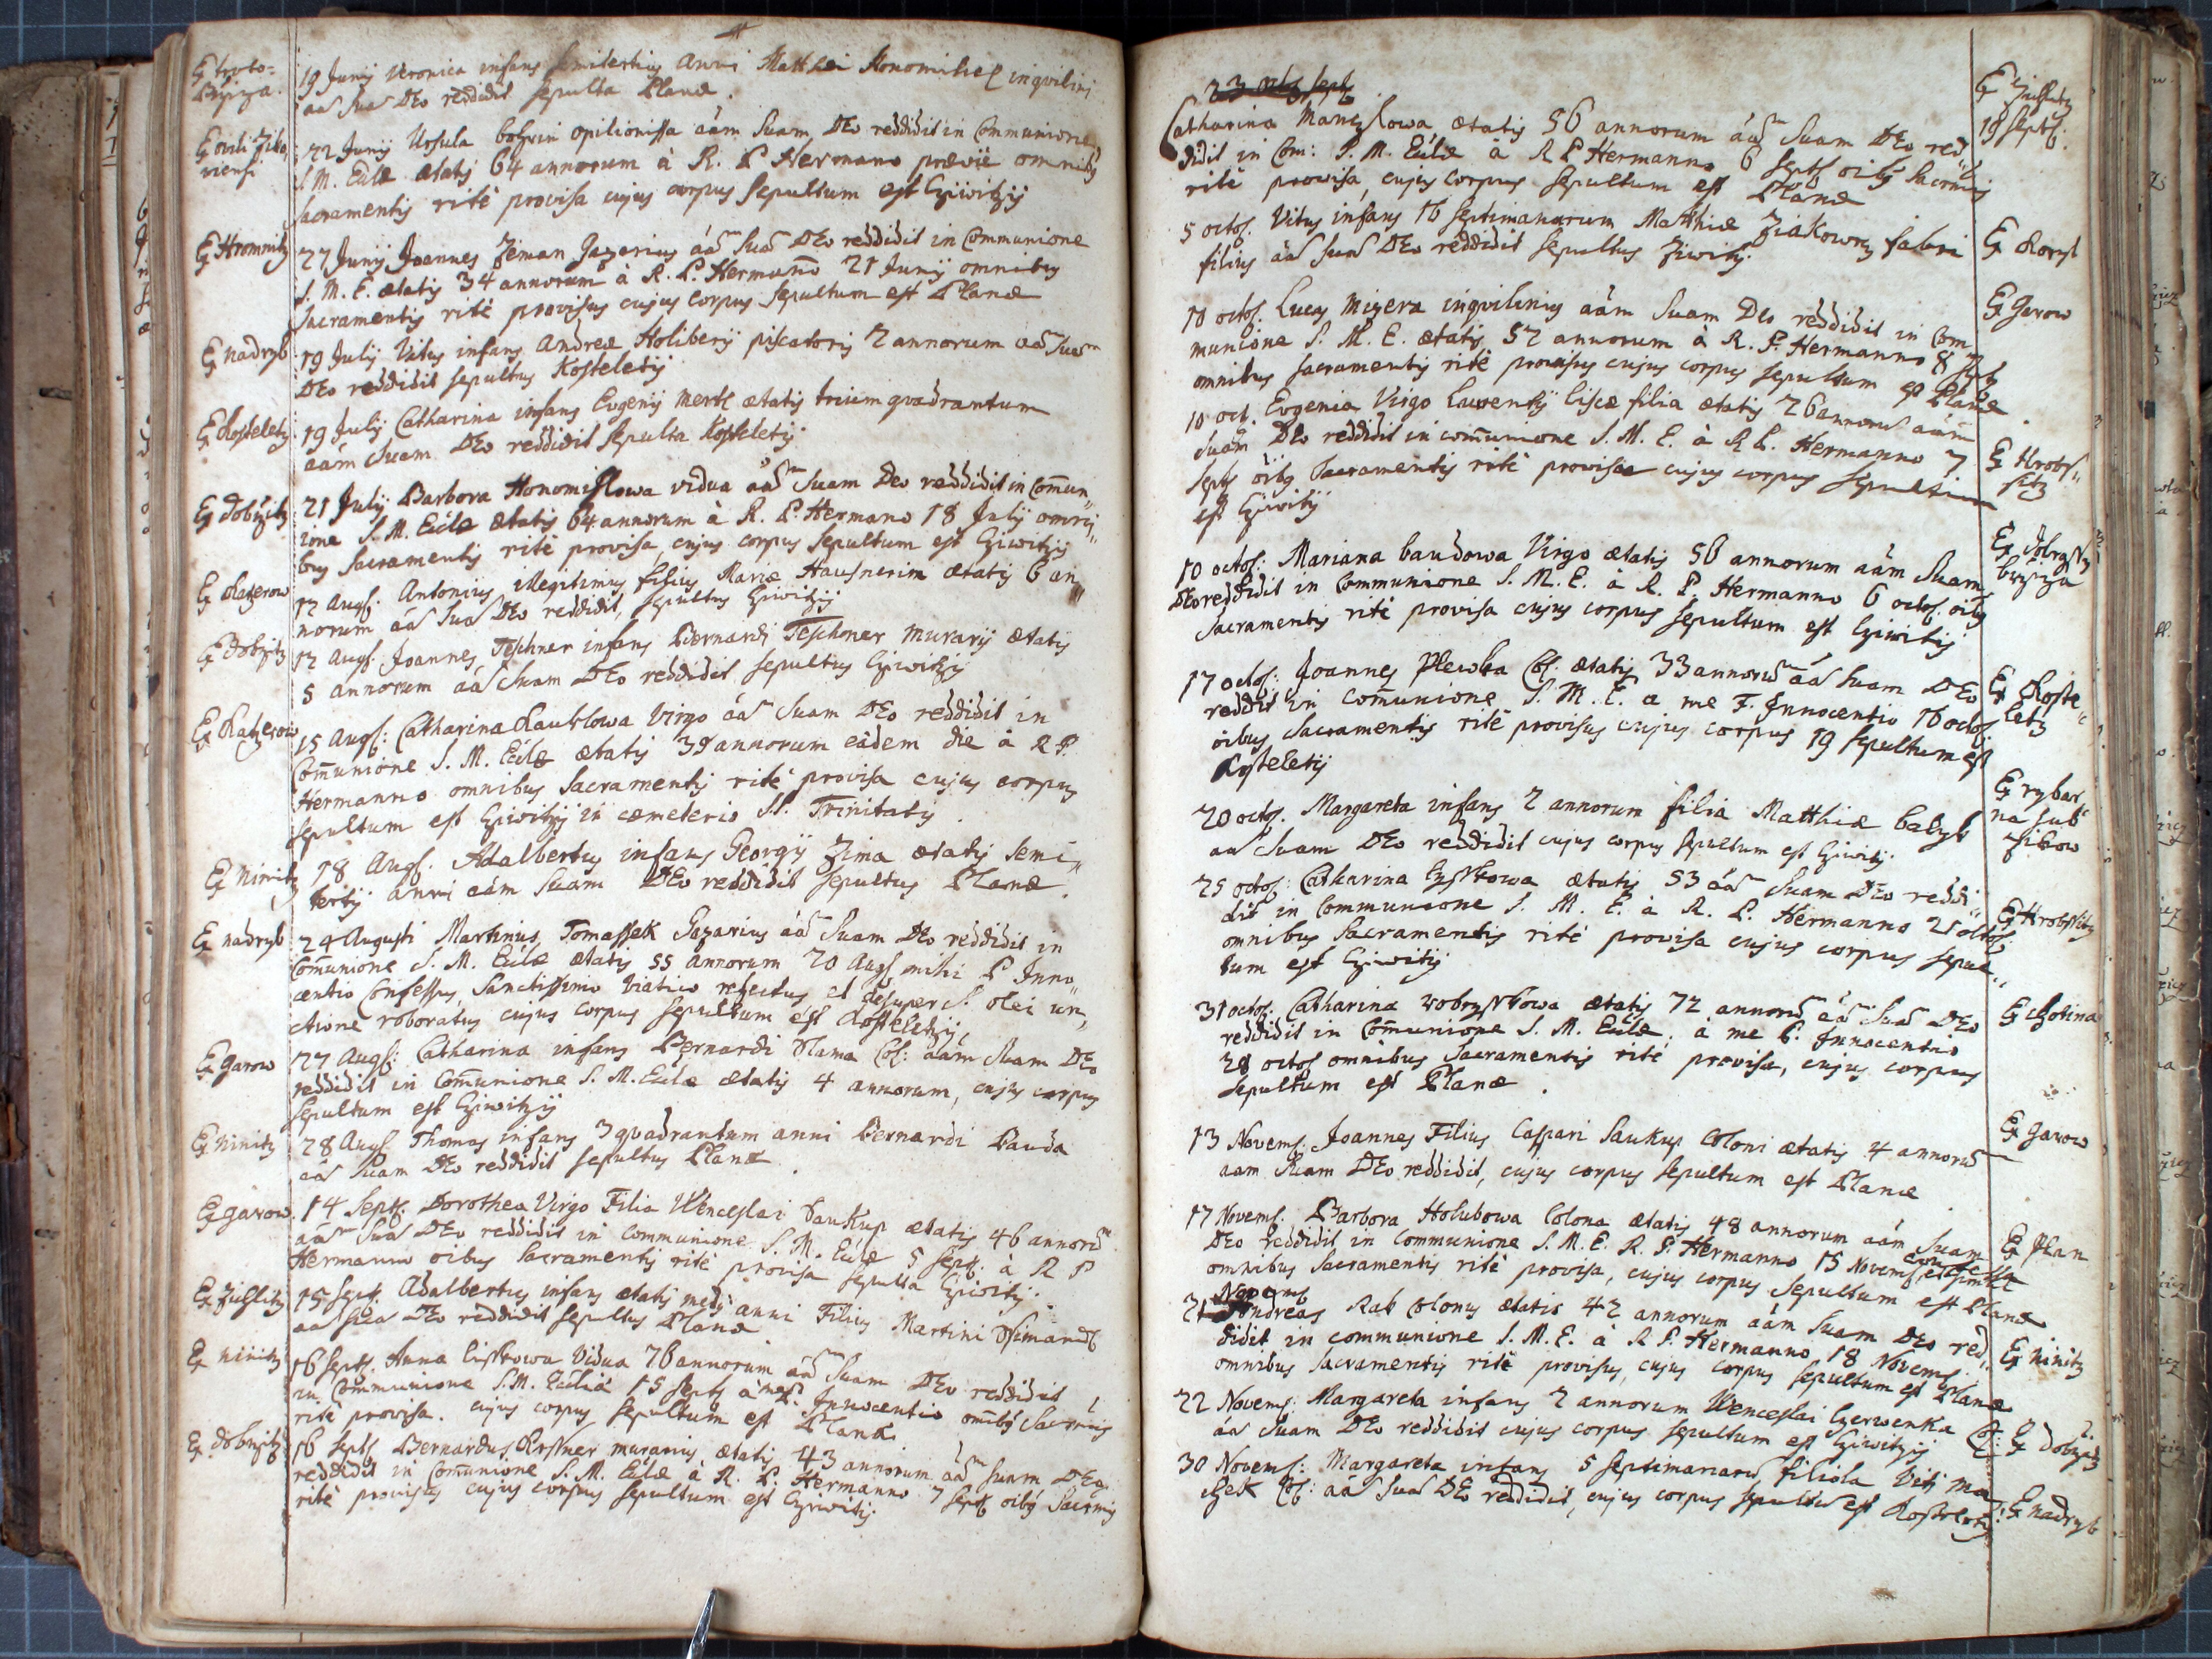 19 Junij Veronica infans semitertius anni Matthæi Honomihel inqvilini
aa~ sua~ DEo reddidit sepulta Planæ.
22 Junij Ursula opilionissa aám Suam DEo reddidit in Communione
S. M. Eccl̃æ ætatis 64 annorum à R. P. Hermano omnibus
sacramentis ritè provisa cujus corpus sepultum est Cziwitzij
Ex Hromnitz
27 Junij Joannes Zeman Gazarius áá~ Sua~ DEo reddidit in Communione
S. M. E. ætatis 34 annorum à R. P. Hermano 21 Junij omnibus
sacramentis ritè provisus cujus corpus sepultum est Planæ
Ex nadryb
19 Julij Vitus infans Andreæ Holibery piscatoris 2 annorum aa~ sua~
DEo reddidit sepultus Kosteletij
Ex Kosteletz
19 Julij Catharina infans Evgenij Mertl ætatis trium qvadrantum
aám Suam DEo reddidit sepulta Kosteletij
Ex dobrzitz
21 Julij Barbora Honomislowa vidua áá~ Suam Deo reddidit in Comun
ione S. M. Eccl̃æ ætatis 64 annorum à R. P. Hermano 18 Julij omni
bus Sacramentis ritè provisa, cujus corpus sepultum est Cziwitzij
Ex Kaczerow
12 Augs. Antonius illegitimus filius Mariæ Hausnerin ætatis 6 an
norum áá~ Sua~ DEo reddidit, sepultus Cziwitzij
Ex dobrzitz
12 Augs. Joannes Teschner infans Bernardi Teschner murarij ætatis
5 annorum aá~ Suam DEo reddidit sepultus Cziwitzij
Ex Kaczerow
15 Augs: Catharina Kauklowa Virgo áá~ Suam DEo reddidit in
Com̃unione S. M. Eccl̃æ ætatis 39 annorum eádem die à R P.
Hermanno omnibus Sacramentis ritè provisa cujus corpus
sepultum est Cziwitzij in cœmeterio SS. Trinitatis.
Ex Ninitz
18 Augs. Adalbertus infans Georgij Zima ætatis Semi
tertij anni aám Suam DEo reddidit sepultus Planæ.
Ex nadryb
24 Augusti Martinus Tomassek Gazarius áá~ Suam DEo reddidit in
Com̃unione S. M. Eccl̃æ ætatis 55 annorum 20 Augs mihi P Inno
centio Confessus, Sanctissimo Viatico refectus et desuper S. olei un
ctione roboratus cujus corpus sepultum est Kosteletzij
Ex Garow
27 Augs: Catharina infans Bernardi Slama Col: aám Suam DEo
reddidit in Com̃unione S. M. Eccl̃æ ætatis 4 annorum, cujus corpus
sepultum est Cziwitzij
Ex Ninitz
28 Augs. Thomas infans 3 qvadrantum anni Bernardi Bauda
aá~ Suam DEo reddidit sepultus Planæ.
Ex Garow
14 Septs. Dorothea Virgo Filia Wenceslai Saukup ætatis 46 annorũ
aá~ Sua~ DEo reddidit in Communione S. M. Eccl̃æ 5 Sept: à R P
Hermano oĩbus Sacramentis ritè provisa sepulta Cziwitij.
15 Sept. Adalbertus infans ætatis medij anni Filius Martini
aa~ Sua~ DEo reddidit sepultus Planæ.
Ex ninitz
16 Septs. Anna Vidua 76 annorum áá~ Suam DEo reddidit
in Communione S. M. Eccl̃iæ 15 Septs à me P. Innocentio om̃ibus Sacrm̃is
ritè provisa. cujus corpus sepultum est Planæ.
Ex dobrzitz
16 Septs Bernardus murarius ætatis 43 annorum áá~ suam DEo
reddidit in Com̃unione S. M. Eccl̃æ à R. P. Hermanno 7 Sept oĩbus Sacrm̃is
ritè provisus cujus corpus sepultum est Cziwitij.
23 octob Septs.
18 Septs:
Catharina ætatis 56 annorum áá~ Suam DEo red
didit in Com: S. M. Eccl̃æ à R P Hermanno 6 Septs oĩbus Sacrm̃is
ritè provisa, cujus corpus sepultum est Planæ
5 octob. Vitus infans 16 septimanarum Matthiæ Ziakowez fabri
filius áá~ Sua~ DEo reddidit sepultus Ziwitij.
Ex Garow
10 octob. Lucas Mizera inqvilinus aám Suam Deo reddidit in Com
munione S. M. E. ætatis 52 annorum à R. P. Hermanno 8
omnibus sacramentis ritè provisus cujus corpus sepultum est Planæ.
10 oct. Evgenia Virgo Laurentij Liscæ filia ætatis 26 annorũ aám
Suam DEo reddidit in com̃unione S. M. E. à R P. Hermanno 7
Septs oĩbus Sacramentis ritè provisa cujus corpus sepultum
est Cziwitij
10 octob: Mariana baudowa Virgo ætatis 56 annorum aám Suam
DEo reddidit in Communione S. M. E. à R. P. Hermanno 6 octob. oĩbus
Sacramentis ritè provisa cujus corpus sepultum est Cziwitij
17 octob: Joannes Plewka Col. ætatis 33 annorũ áá~ Suam DEo
Ex Koste
letz
reddidit in com̃unione S. M. E. a me F. Innocentio 16 octob.
oĩbus Sacramentis ritè provisus cujus corpus 19 sepultum est
Kosteletij
Ex rybar
na sub
20 octob. Margareta infans 2 annorum filia Matthiæ
aa~ Suam DEo reddidit cujus corpus sepultum est Cziwitij.
25 octob: Catharina ætatis 53 áá~ Suam DEo reddi
dit in Communione S. M. E. à R. P. Hermanno 21 octob.
omnibus Sacramentis ritè provisa cujus corpus sepul
tum est Cziwitij
31 octob: Catharina ætatis 72 annorũ áá~ Sua~ DEo
reddidit in Com̃unione S. M. Eccl̃æ. à me P. Innocentio
28 octob omnibus Sacramentis ritè provisa, cujus corpus
sepultum est Planæ.
Ex Garow
13 Novemb. Joannes Filius Caspari Saukup Coloni ætatis 4 annorũ
aam Suam DEo reddidit, cujus corpus sepultum est Planæ
Ex Plan
17 Novemb. Barbora Holubowa Colona ætatis 48 annorum aám Suam
DEo reddidit in Communione S. M. E. R. P. Hermanno 15 Novemb.
omnibus Sacramentis ritè provisa, cujus corpus sepultum est Planæ
Novemb
21 Andreas Rab Colonus ætatis 42 annorum aám Suam DEo red
Ex Ninitz
didit in communione S. M. E. à R P. Hermanno 18 Novemb.
omnibus Sacramentis ritè provisus, cujus corpus sepultum est Planæ
22 Novemb: Margareta infans 2 annorum Wenceslai Czerwenka Col:
Ex dobrzitz
áa~ Suam DEo reddidit cujus corpus sepultum est Cziwitzij
30 Novemb: Margareta infans 5 septimanarũ filiola Viti Ma
czek Col: aá~ Sua~ DEo reddidit, cujus corpus sepultũ est Kosteletij
Ex nadryb